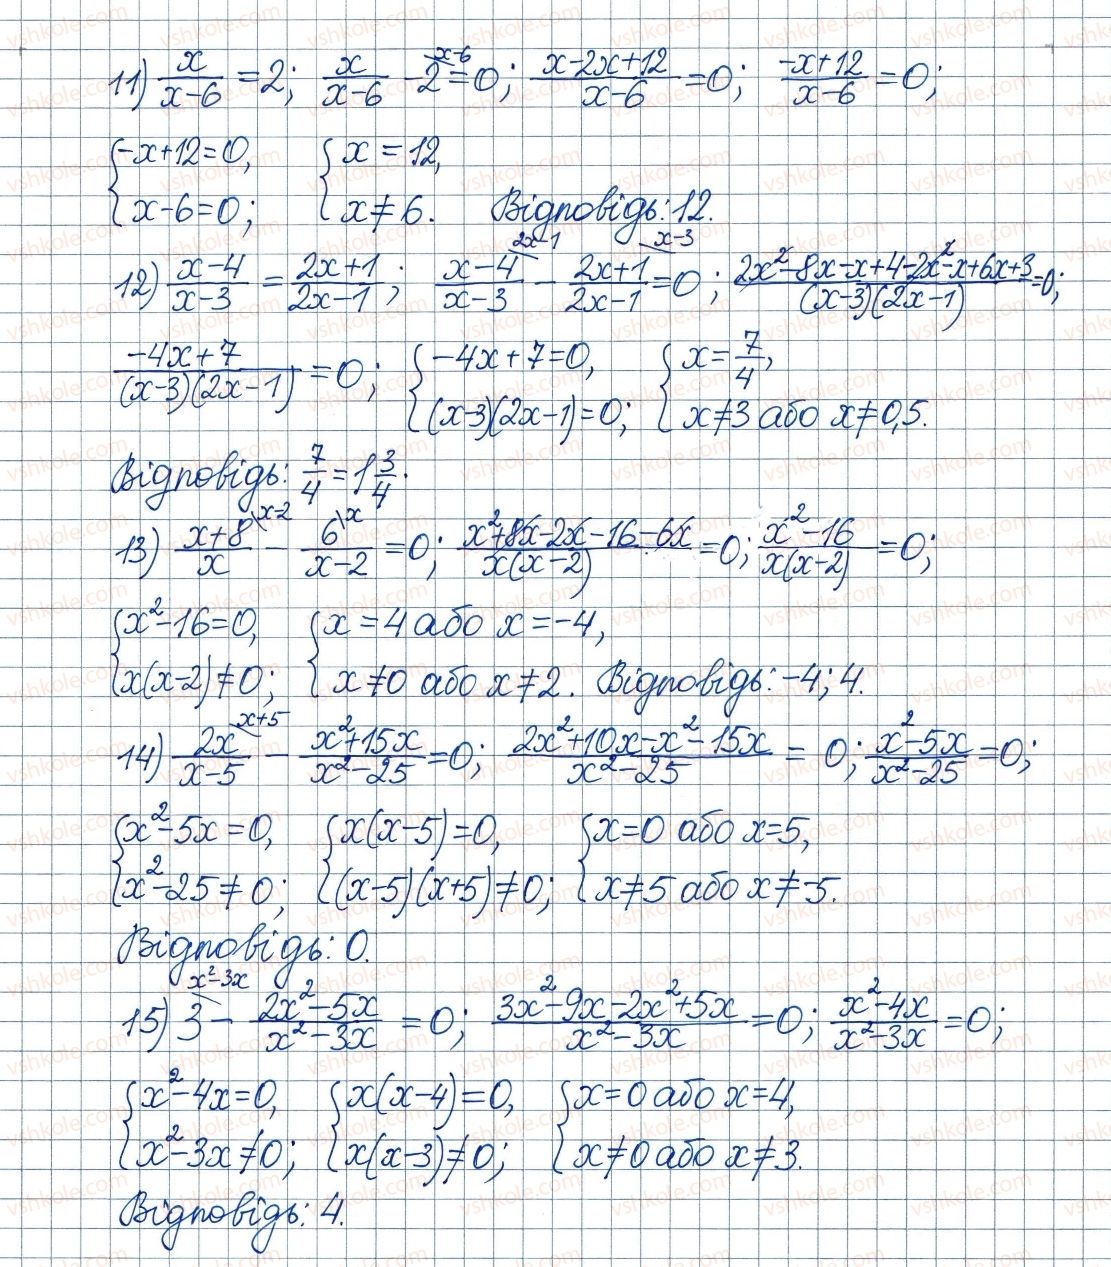 11) x/(x-6) = 2; x/(x-6) - 2^(x-6) = 0; (x-2x+12)/(x-6) = 0; (-x+12)/(x-6) = 0;
{-x+12=0, x-6=0; {x=12, x≠6. Відповідь: 12.
12) (x-4)/(x-3) = (2x+1)/(2x-1); (x-4)/(x-3)^(2x-1) - (2x+1)/(2x-1)^(x-3) = 0; (2x²-8x-x+4-2x²-x+6x+3)/((x-3)(2x-1)) = 0;
(-4x+7)/((x-3)(2x-1)) = 0; {-4x+7=0, (x-3)(2x-1)=0; {x=7/4, x≠3 або x≠0,5.
Відповідь: 7/4 = 1 3/4.
13) (x+8)/x^(\x-2) - 6/(x-2)^(\x) = 0; (x²+8x-2x-16-6x)/(x(x-2)) = 0; (x²-16)/(x(x-2)) = 0;
{x²-16=0, x(x-2)≠0; {x=4 або x=-4, x≠0 або x≠2. Відповідь: -4; 4.
14) 2x/(x-5)^(x+5) - (x²+15x)/(x²-25) = 0; (2x²+10x-x²-15x)/(x²-25) = 0; (x²-5x)/(x²-25) = 0;
{x²-5x=0, x²-25≠0; {x(x-5)=0, (x-5)(x+5)≠0; {x=0 або x=5, x≠5 або x≠-5.
Відповідь: 0.
15) 3^(x²-3x) - (2x²-5x)/(x²-3x) = 0; (3x²-9x-2x²+5x)/(x²-3x) = 0; (x²-4x)/(x²-3x) = 0;
{x²-4x=0, x²-3x≠0; {x(x-4)=0, x(x-3)≠0; {x=0 або x=4, x≠0 або x≠3.
Відповідь: 4.
vshkole.com